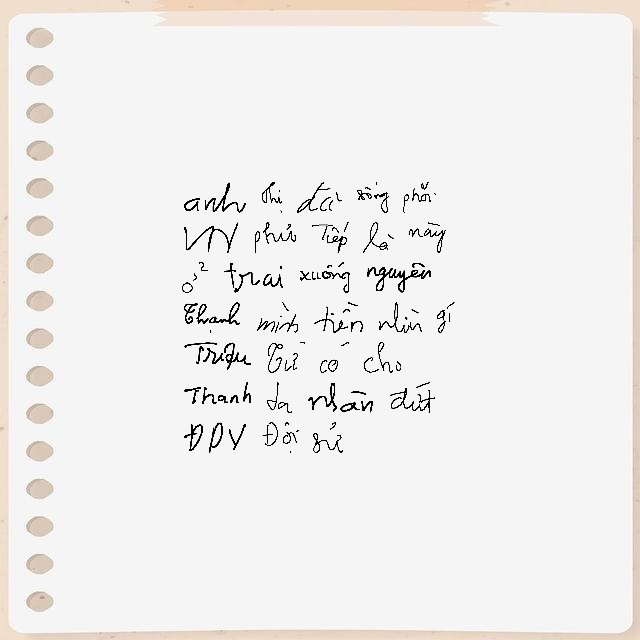 anh thị đã sống phải
VN phút Tiếp là này
trai xuống nguyên
Thạnh mình tiền nhìn gì
Triệu Từ có cho
Thanh da nhân đứt
ĐDV Đội sử